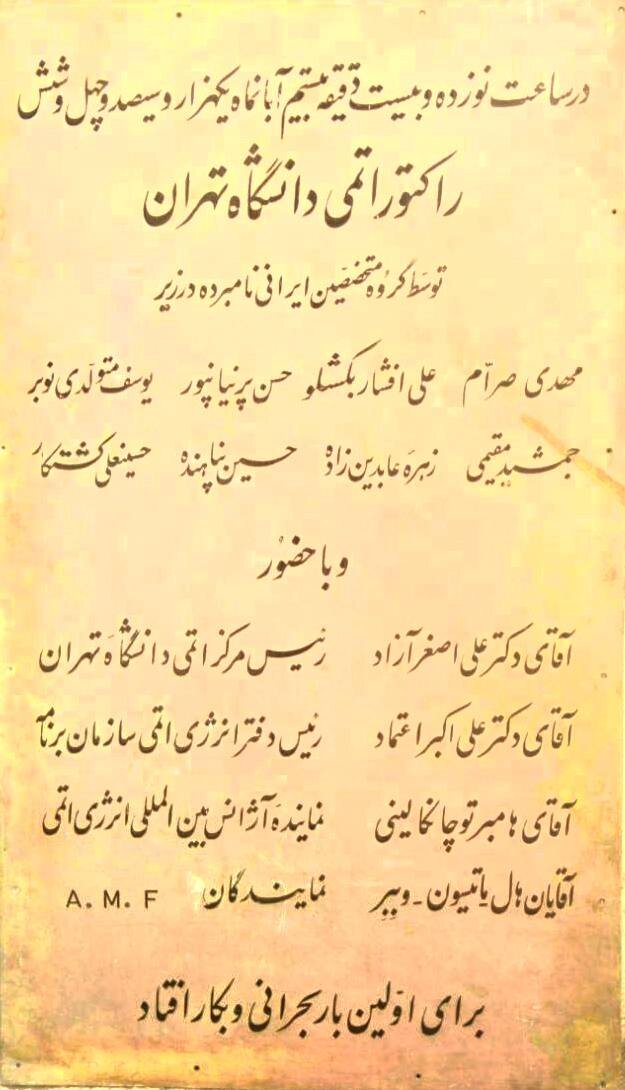 در ساعت نوزده و بیست دقیقه بیستم آبانماه یکهزار و سیصد و چهل و شش
راکتور اتمی دانشگاه تهران
توسط گروه متخصصین ایرانی نامبرده در زیر
مهدی صرّام علی افشار بکشلو حسن پرنیانپور یوسف متولدی نوبر
جمشید مقیمی زهره عابدین زاده حسین پناهنده حسینعلی کشتکار
و با حضور
آقای دکتر علی اصغر آزاد رئیس مرکز اتمی دانشگاه تهران
آقای دکتر علی اکبر اعتماد رئیس دفتر انرژی اتمی سازمان برنامه
آقای هامبرتو چانکالینی نماینده آژانس بین المللی انرژی اتمی
آقایان هال ماتیسون - وییر نمایندگان A. M. F
برای اوّلین بار بحرانی و بکار افتاد